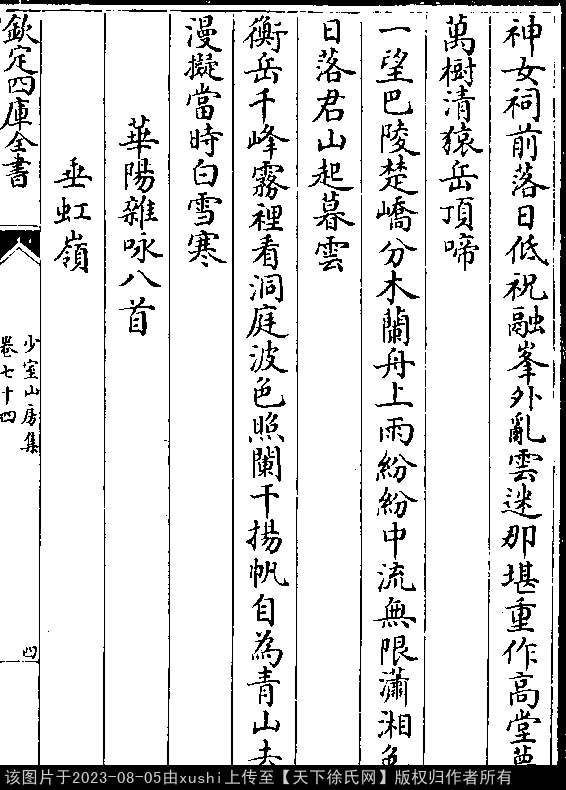 神女祠前落日低祝融峯外亂雲迷那堪重作高堂夢
萬樹清猿岳頂啼
一望巴陵楚嶠分木蘭舟上雨紛紛中流無限瀟湘色
日落君山起暮雲
衡岳千峰霧裡看洞庭波色照闌干揚帆自為青山去
漫擬當時白雪寒
華陽雜咏八首
垂虹嶺
欽定四庫全書
少室山房集
卷七十四
四
该图片于2023-08-05由xushi上传至【天下徐氏网】版权归作者所有